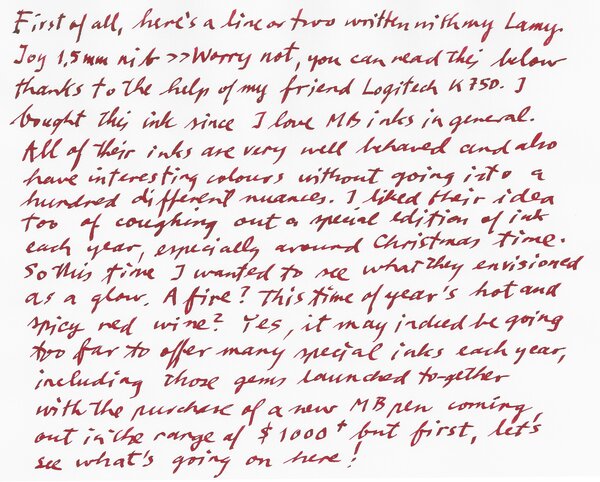 First of all, here's a line or two written with my Lamy
Joy 1,5mm nib >> Worry not, you can read this below
thanks to the help of my friend Logitech K750. I
bought this ink since I love MB inks in general.
All of their inks are very well behaved and also
have interesting colours without going into a
hundred different nuances. I liked their idea
too of coughing out a special edition of ink
each year, especially around Christmas time.
So this time I wanted to see what they envisioned
as a glow. A fire? This time of year's hot and
spicy red wine? Yes, it may indeed be going
too far to offer many special inks each year,
including those gems launched to-gether
with the purchase of a new MB pen coming
out in the range of $1000+ but first, let's
see what's going on here!